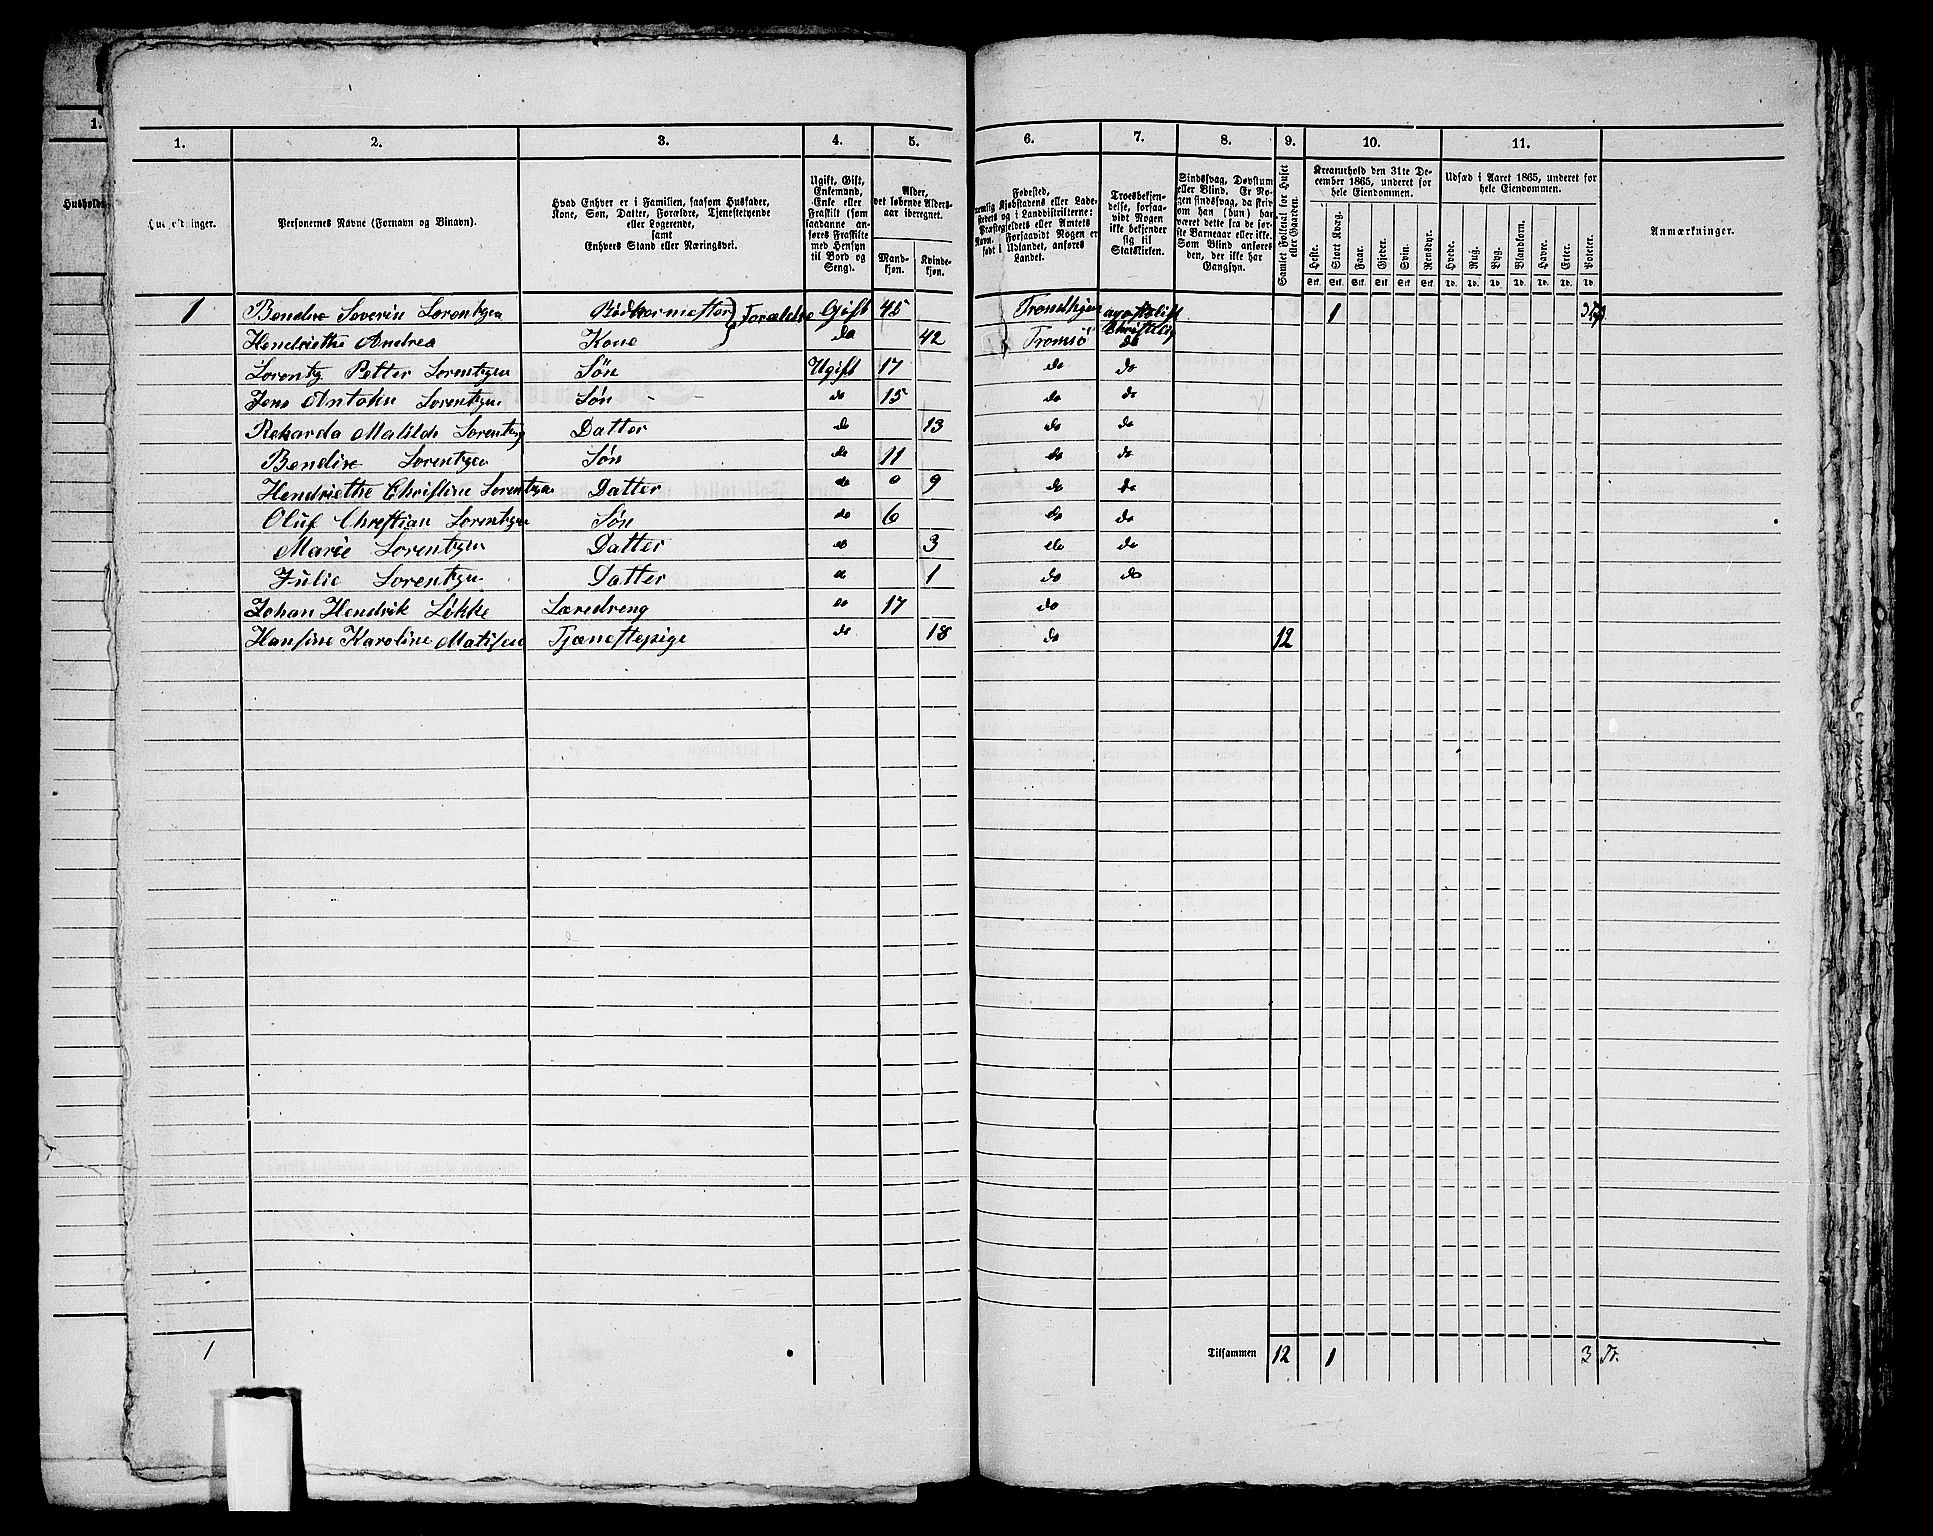 1. 2. 3. 4. 5. 6. 7. 8. 9. 10. 11.
Personernes Navne (Fornavn og Binavn).
Hvad Enhver er i Familien, saasom Husfader, Kone, Søn, Datter, Forældre, Tjenestetyende eller Logerende, samt Enhvers Stand eller Næringsvei.
Ugift, Gift, Enkemand, Enke eller Fraskilt (som saadanne anføres Fraskilte med Hensyn til Bord og Seng).
Alder, det løbende Aldersaar iberegnet.
Mandkjøn. Kvindekjøn.
Fødested, nemlig Kjøbstadens eller Ladestedets og i Landdistrikterne: Præstegjeldets eller Amtets Navn. Forsaavidt Nogen er født i Udlandet, anføres Landet.
Troesbekjendelse, forsaavidt Nogen ikke bekjender sig til Statskirken.
Sindssvag, Døvstum eller Blind. Er Nogen sindssvag, da skrives om han (hun) har været dette fra de første Barneaar eller ikke. Som Blind anføres den, der ikke har Gangsyn.
Samlet Folketal for Huset eller Gaarden.
Kreaturhold den 31te December 1865, underet for hele Eiendommen.
Heste. Stort Kvæg. Faar. Gjeder. Svin. Rensdyr.
Stk. Stk. Stk. Stk. Stk. Stk.
Udsæd i Aaret 1865, underet for hele Eiendommen.
Hvede. Rug. Byg. Blandkorn. Havre. Erter. Poteter.
Td. Td. Td. Td. Td. Td. Td.
Anmærkninger.
1 Bendix Severin Lorentzen Bødkermester } Forældre Gift 45 Trondhjem apostolisk Christelig 1
Hendriethe Andrea Kone do 42 Tromsø do
Lorentz Petter Lorentzen Søn Ugift 17 do do
Jens Antohn Lorentzen Søn do 15 do do
Rekarda Matilde Lorentzen Datter do 13 do do
Bendix Lorentzen Søn do 11 do do
Hendriethe Christine Lorentzen Datter do 0 9 do do
Oluf Christian Lorentzen Søn do 6 do do
Marie Lorentzen Datter do 3 do do
Julie Lorentzen Datter do 1 do do
Johan Hendrik Løkke Læredreng do 17 do
Hansine Karoline Matisen Tjænestepige do 18 do 12
1 Tilsammen 12 1 3 Tr.